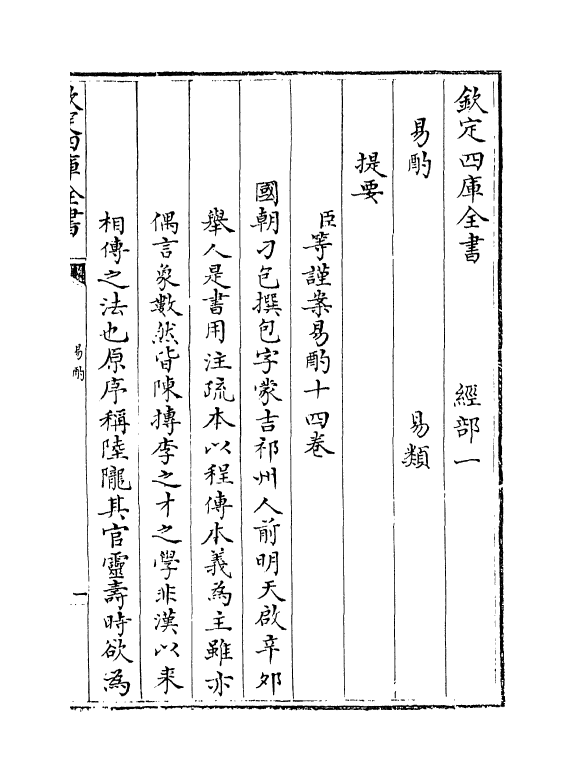 欽定四庫全書　經部一
易酌　易類
提要
臣等謹案易酌十四卷
國朝刁包撰包字蒙吉祁州人前明天啟辛卯
舉人是書用注疏本以程傳本義為主雖亦
偶言象數然皆陳摶李之才之學非漢以來
相傳之法也原序稱陸隴其官靈壽時欲為
欽定四庫全書
易酌
一